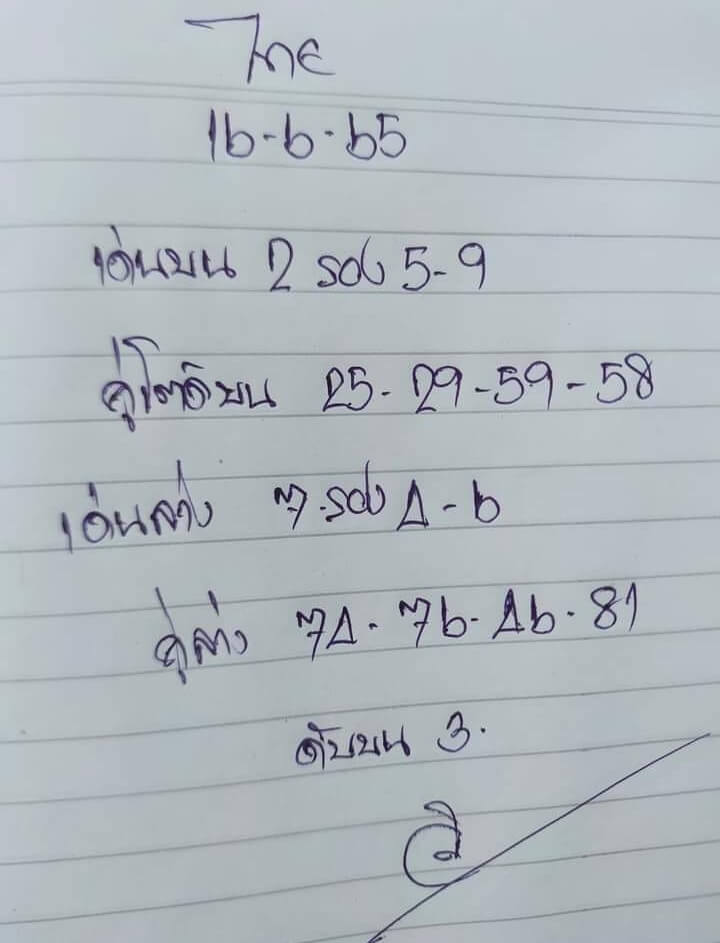 ไทย
16-6-65
เด่นบน 2 รอง 5-9
คู่โต๊ดบน 25-29-59-58
เด่นล่าง 7.รอง 4-6
คู่ล่าง 74-76-46-81
ดับบน 3.